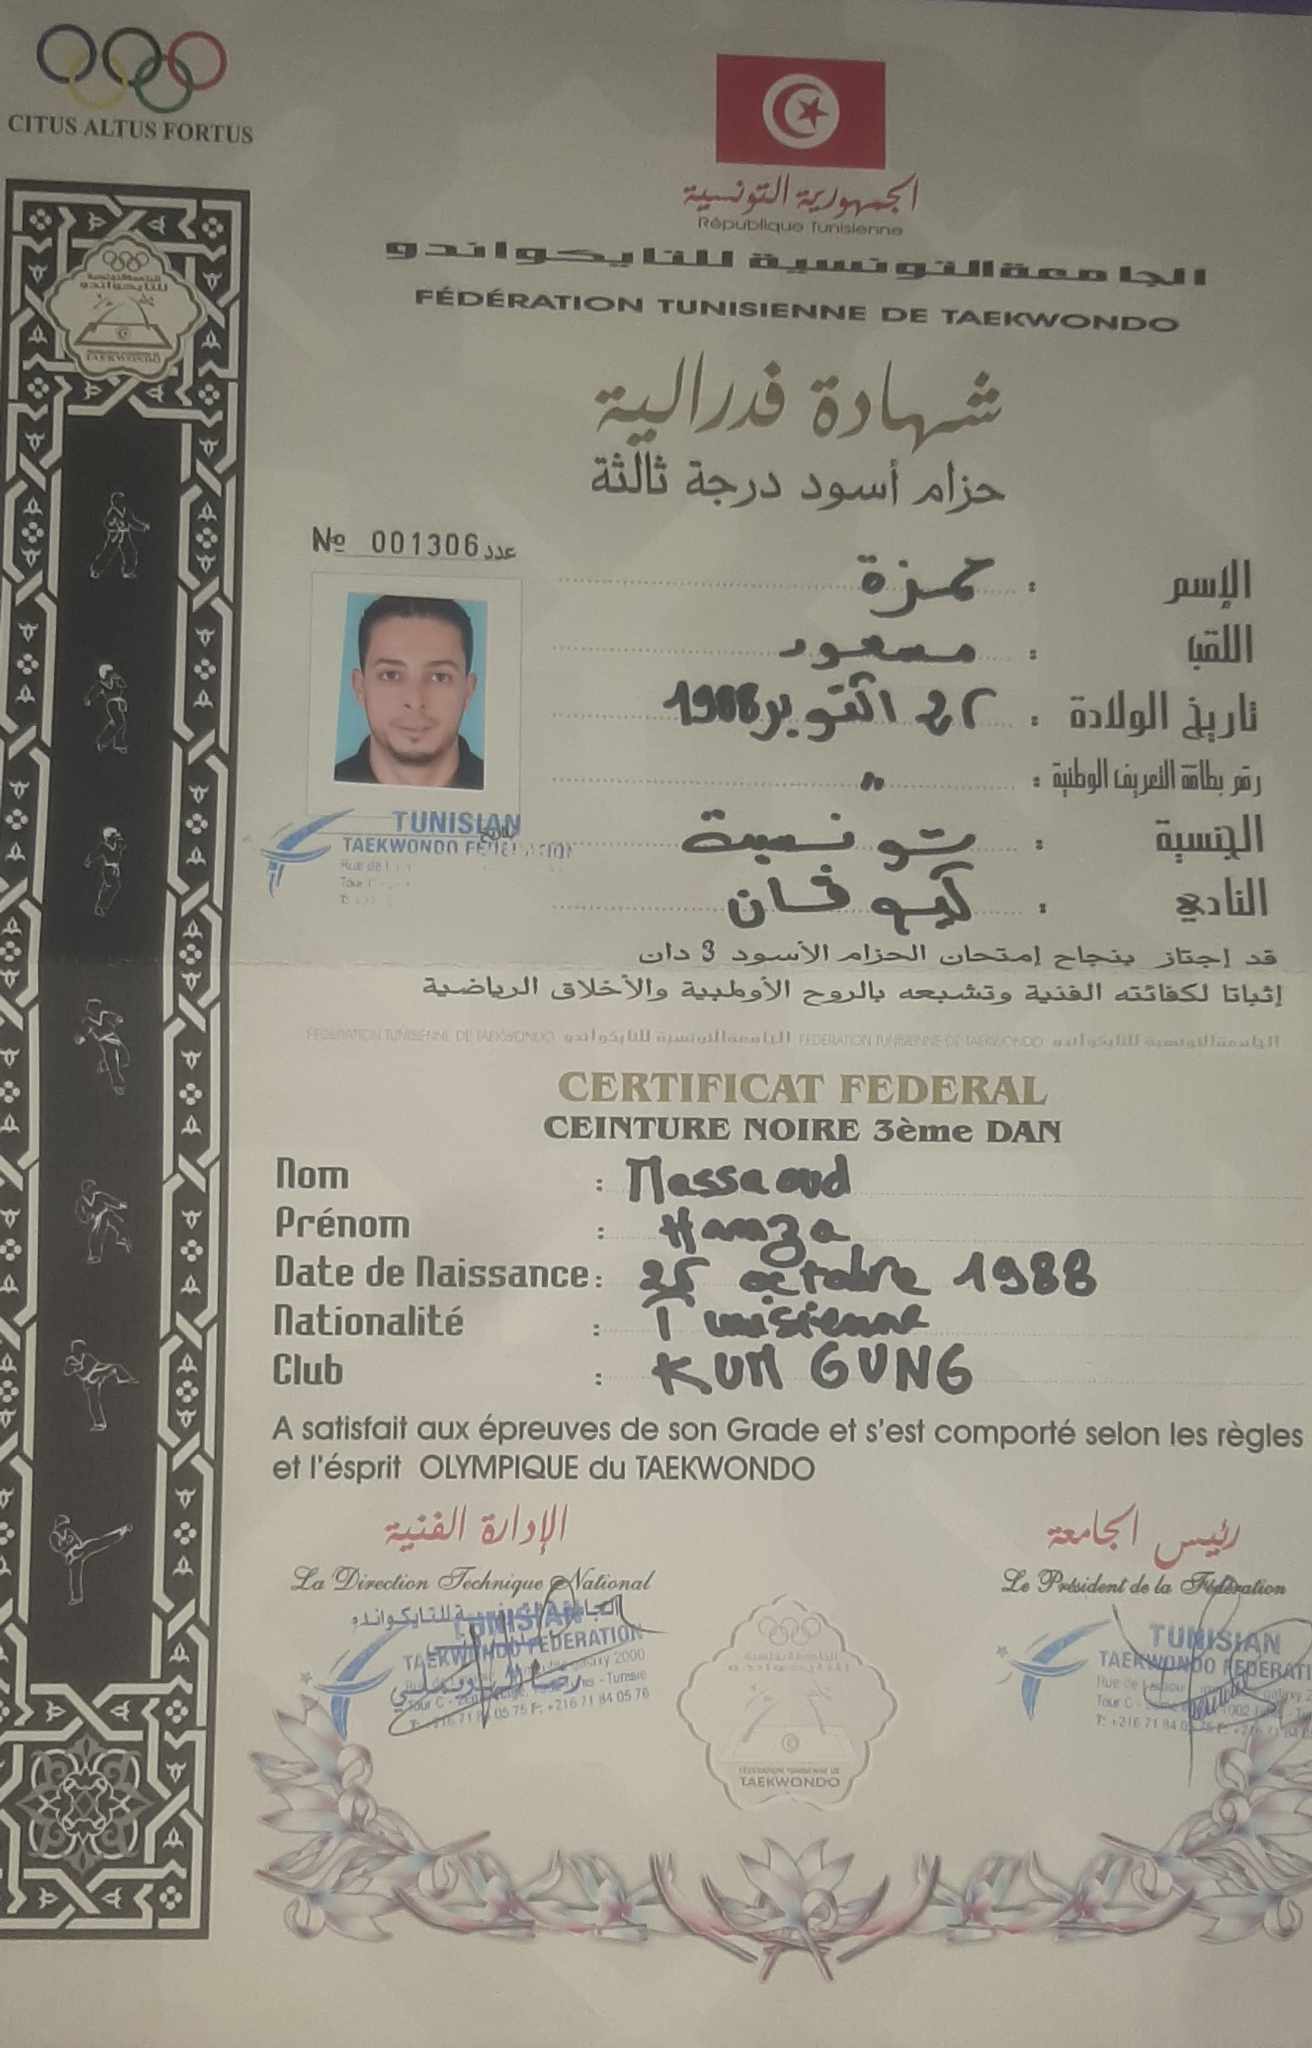 CITUS ALTUS FORTUS
الجمهورية التونسية
République Tunisienne
الجامعة التونسية للتايكواندو
FÉDÉRATION TUNISIENNE DE TAEKWONDO
شهادة فدرالية
حزام أسود درجة ثالثة
Nº 001306 عدد
الإسم : حمزة
اللقب : مسعود
تاريخ الولادة : أكتوبر 1988
رقم بطاقة التعريف الوطنية : "
الجنسية : تونسية
النادي :
TUNISIAN
TAEKWONDO FEDERATION
قد إجتاز بنجاح إمتحان الحزام الأسود 3 دان
إثباتا لكفائته الفنية وتشبعه بالروح الأولمبية والأخلاق الرياضية
FÉDÉRATION TUNISIENNE DE TAEKWONDO الجامعة التونسية للتايكواندو FÉDÉRATION TUNISIENNE DE TAEKWONDO الجامعة التونسية للتايكواندو
CERTIFICAT FEDERAL
CEINTURE NOIRE 3ème DAN
Nom : Massaoud
Prénom : Hamza
Date de Naissance : 25 octobre 1988
Nationalité : Tunisienne
Club : KUM GUNG
A satisfait aux épreuves de son Grade et s'est comporté selon les règles
et l'ésprit OLYMPIQUE du TAEKWONDO
الإدارة الفنية
La Direction Technique National
رئيس الجامعة
Le Président de la Fédération
الجامعة التونسية للتايكواندو
TUNISIAN
TAEKWONDO FEDERATION
T: +216 71 84 05 75 F: +216 71 84 05 76
TUNISIAN
TAEKWONDO FEDERATI
FÉDÉRATION TUNISIENNE DE
TAEKWONDO